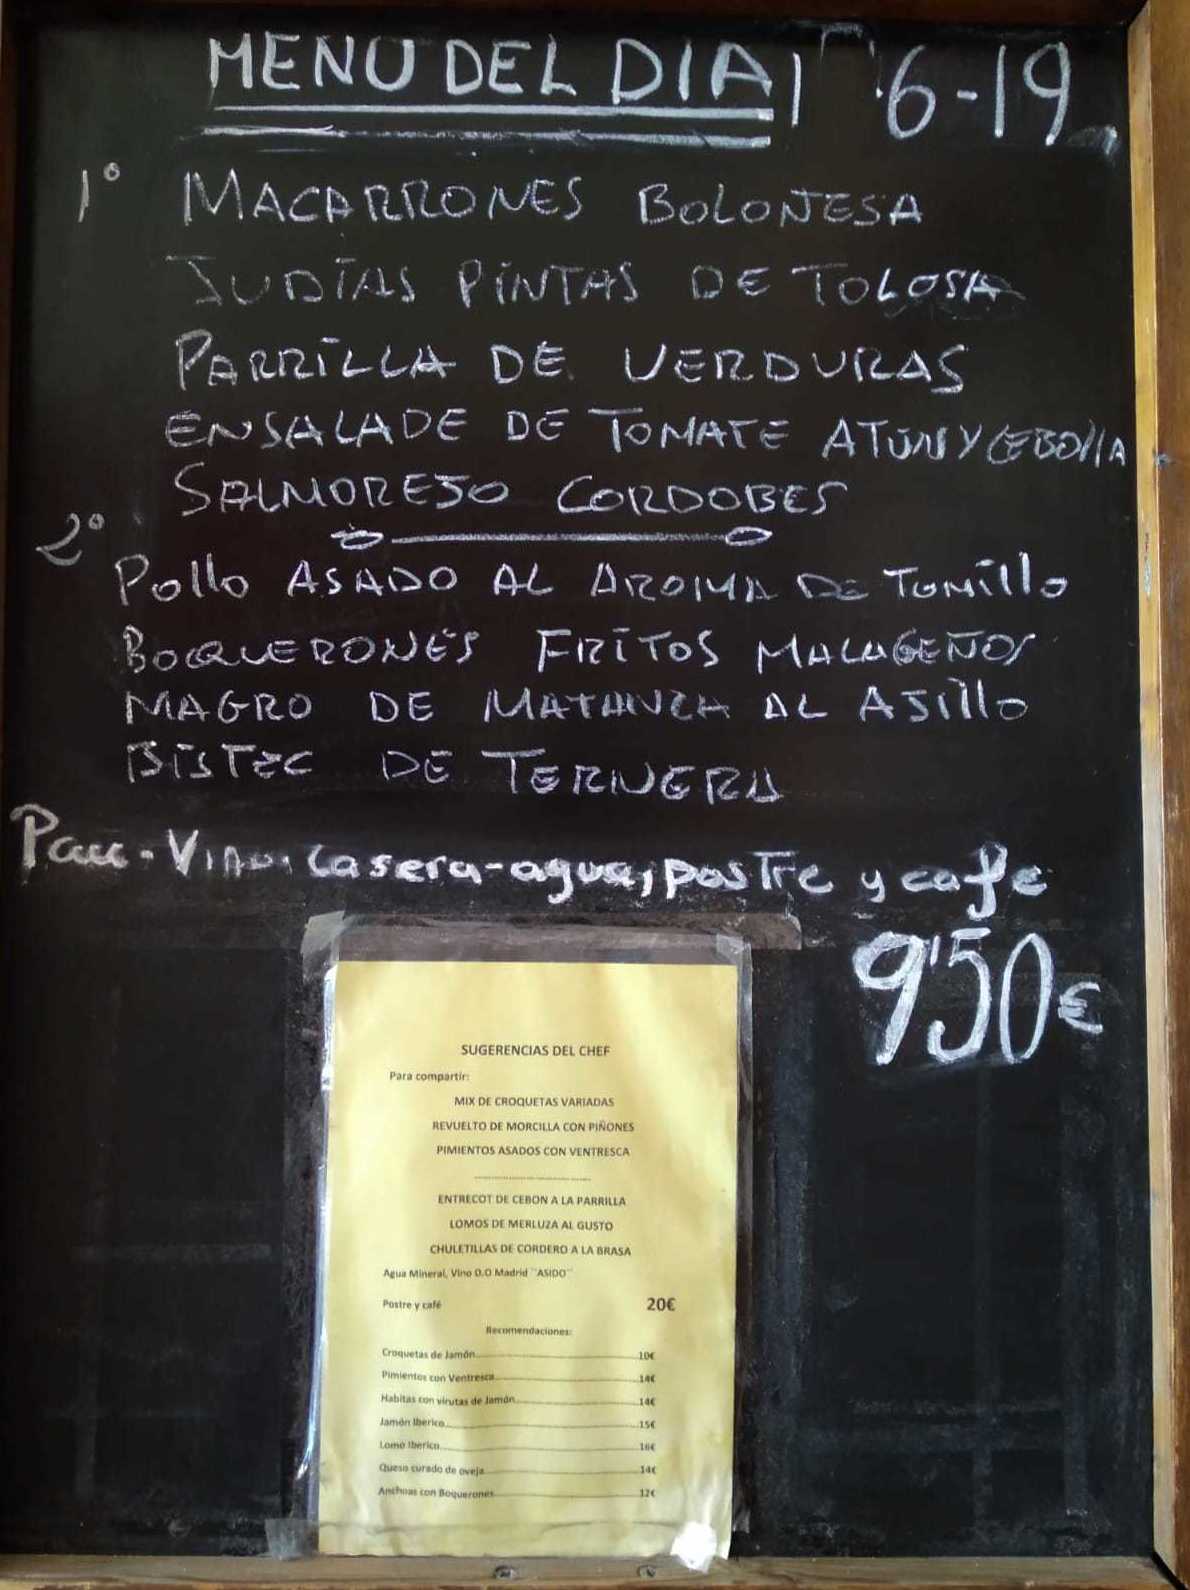 MENU DEL DIA 6-19
1º MACARRONES BOLOÑESA
JUDÍAS PINTAS DE TOLOSA
PARRILLA DE VERDURAS
ENSALADE DE TOMATE ATUN Y CEBOllA
SALMOREJO CORDOBES
2º
Pollo ASADO AL AROMA DE TOMillo
BOQUERONES FRITOS MALAGEÑOS
MAGRO DE MATANZA AL AJillo
BISTEC DE TERNERA
Pan - Vino, Casera - agua, postre y cafe
9'50€
SUGERENCIAS DEL CHEF
Para compartir:
MIX DE CROQUETAS VARIADAS
REVUELTO DE MORCILLA CON PIÑONES
PIMIENTOS ASADOS CON VENTRESCA
ENTRECOT DE CEBON A LA PARRILLA
LOMOS DE MERLUZA AL GUSTO
CHULETILLAS DE CORDERO A LA BRASA
Agua Mineral, Vino D.O Madrid ``ASIDO``
Postre y café 20€
Recomendaciones:
Croquetas de Jamón 10€
Pimientos con Ventresca 14€
Habitas con virutas de Jamón 14€
Jamón Iberico 15€
Lomo Iberico 16€
Queso curado de oveja 14€
Anchoas con Boquerones 12€